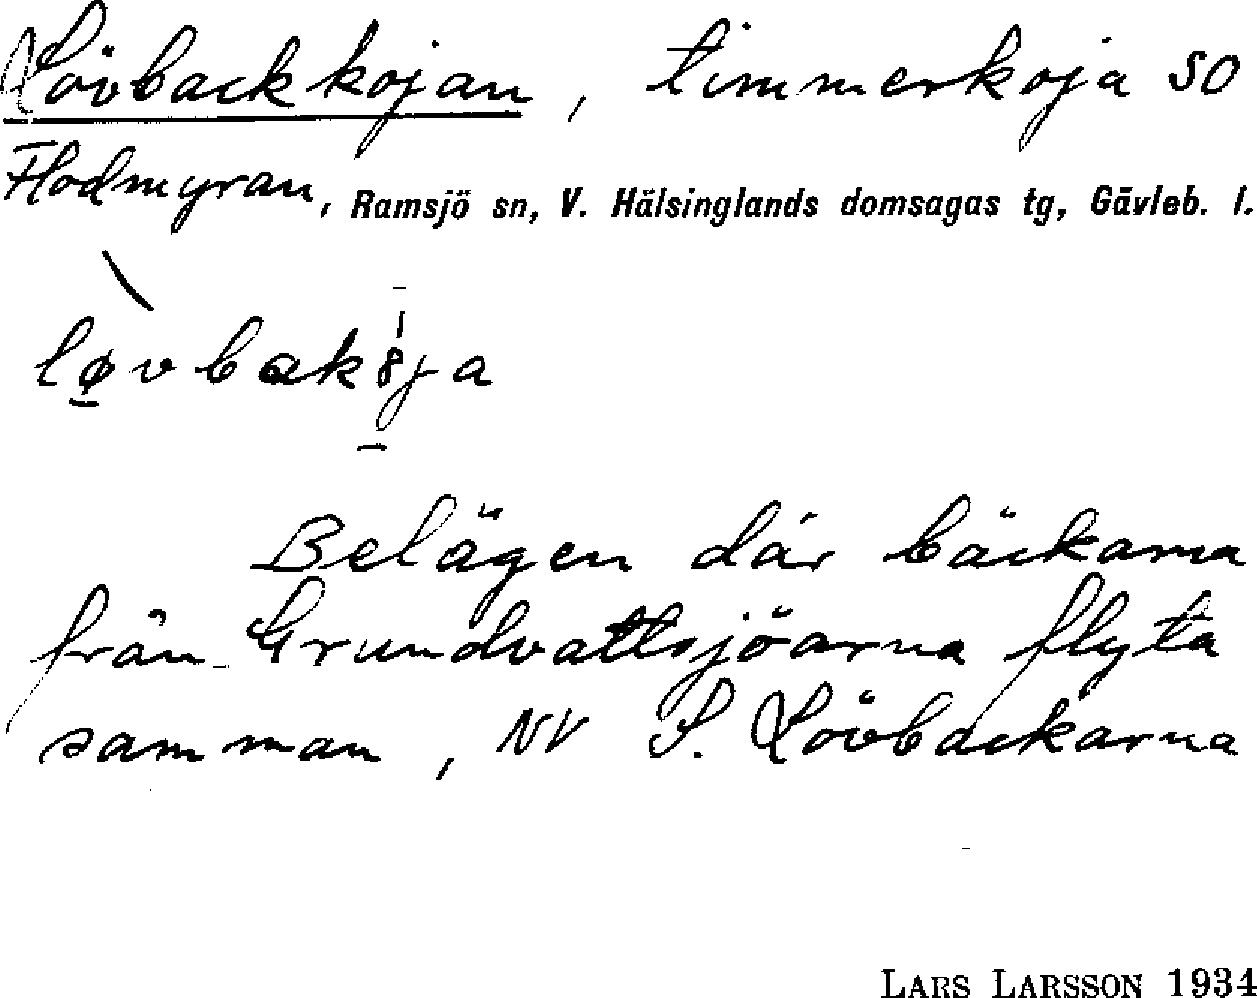 Lövbackkojan, timmerkoja SO
Flodmyran, Ramsjö sn, V. Hälsinglands domsagas tg, Gävleb. l.
Belägen där bäckarna
från Grundvattsjöarna flyta
samman, NV S. Lövbackarna
LARS LARSSON 1934